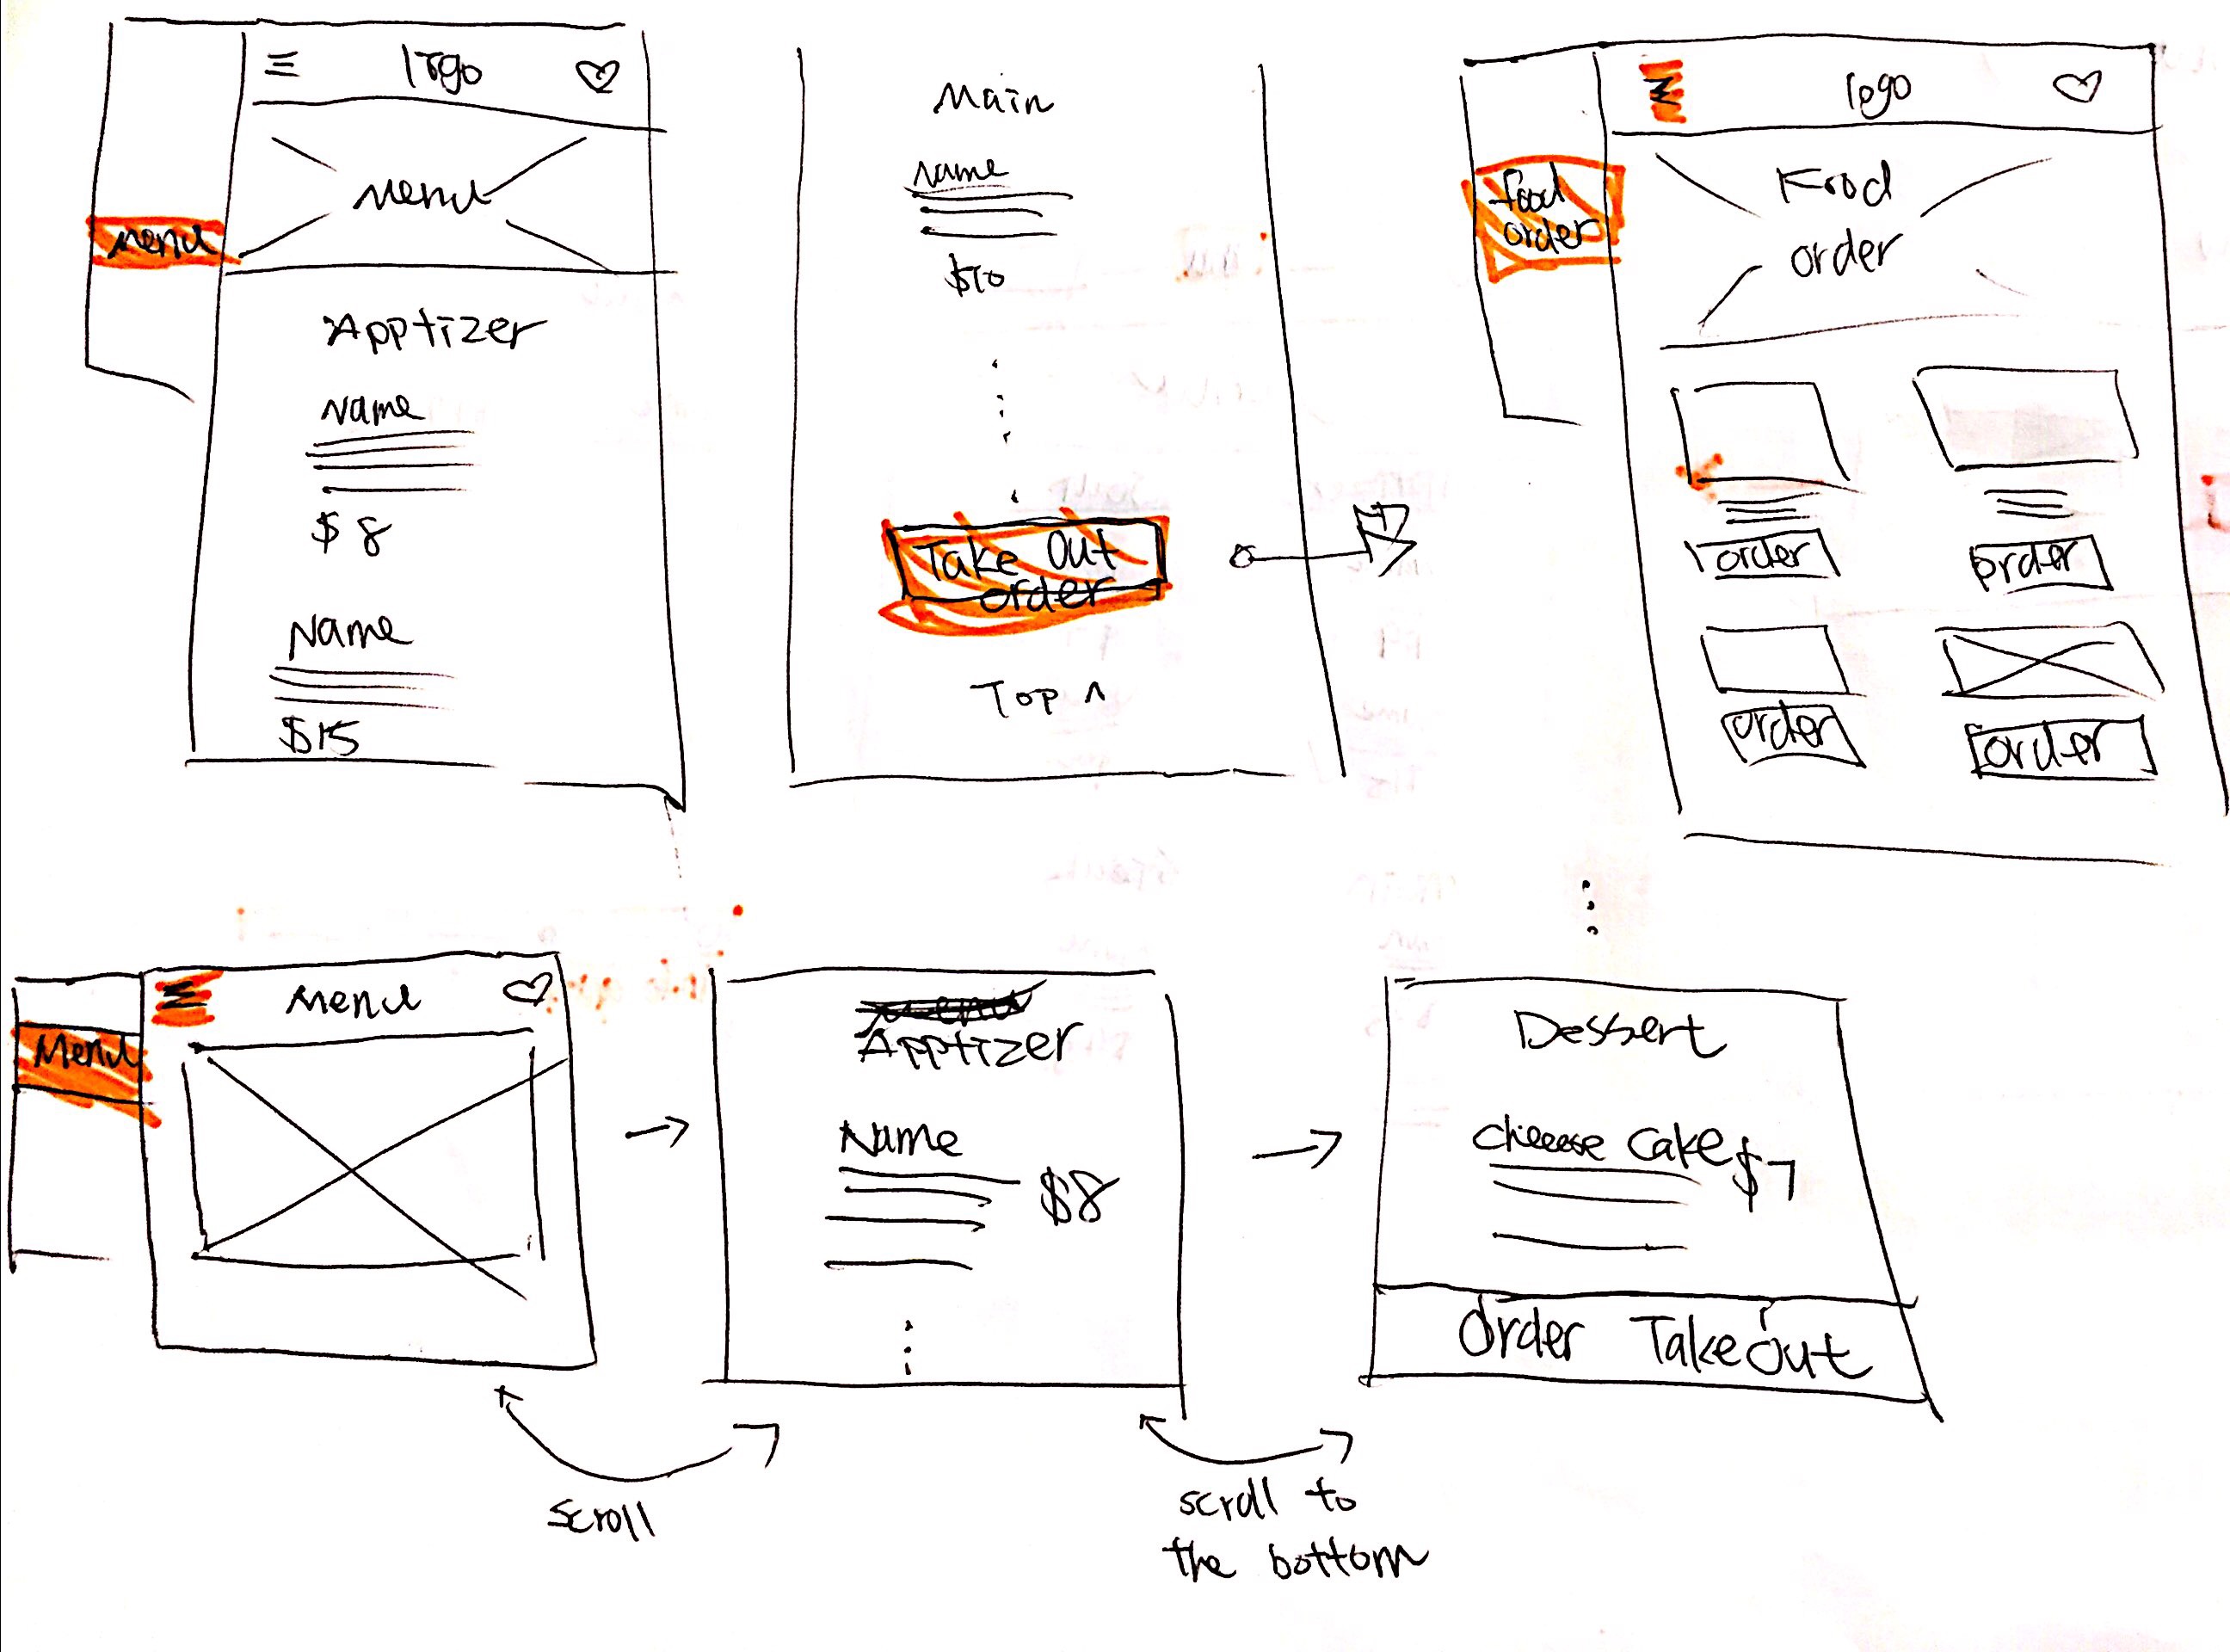 logo
Menu
menu
Apptizer
Name
$8
Name
$15
Main
Name
$10
Take Out
order
Top ^
logo
food
order
Food
order
order
order
order
order
Menu
Menu
Apptizer
Name
$8
Dessert
cheeese cake
$7
Order Takeout
scroll
scroll to
the bottom